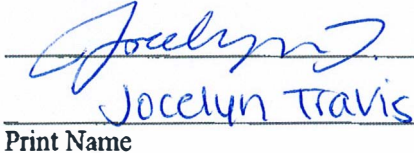 Jocelyn T.
Jocelyn Travis
Print Name